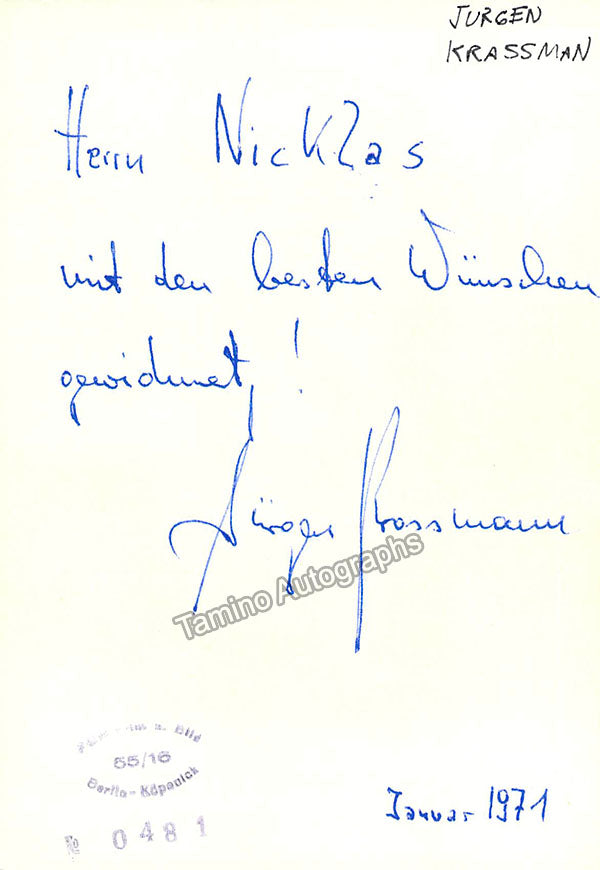 JURGEN
KRASSMAN
Herrn Nicklas
mit den besten Wünschen
gewidmet!
Jürgen Krassmann
Tamino Autographs
a. Bild
55/16
Berlin-Köpenick
0481
Januar 1971